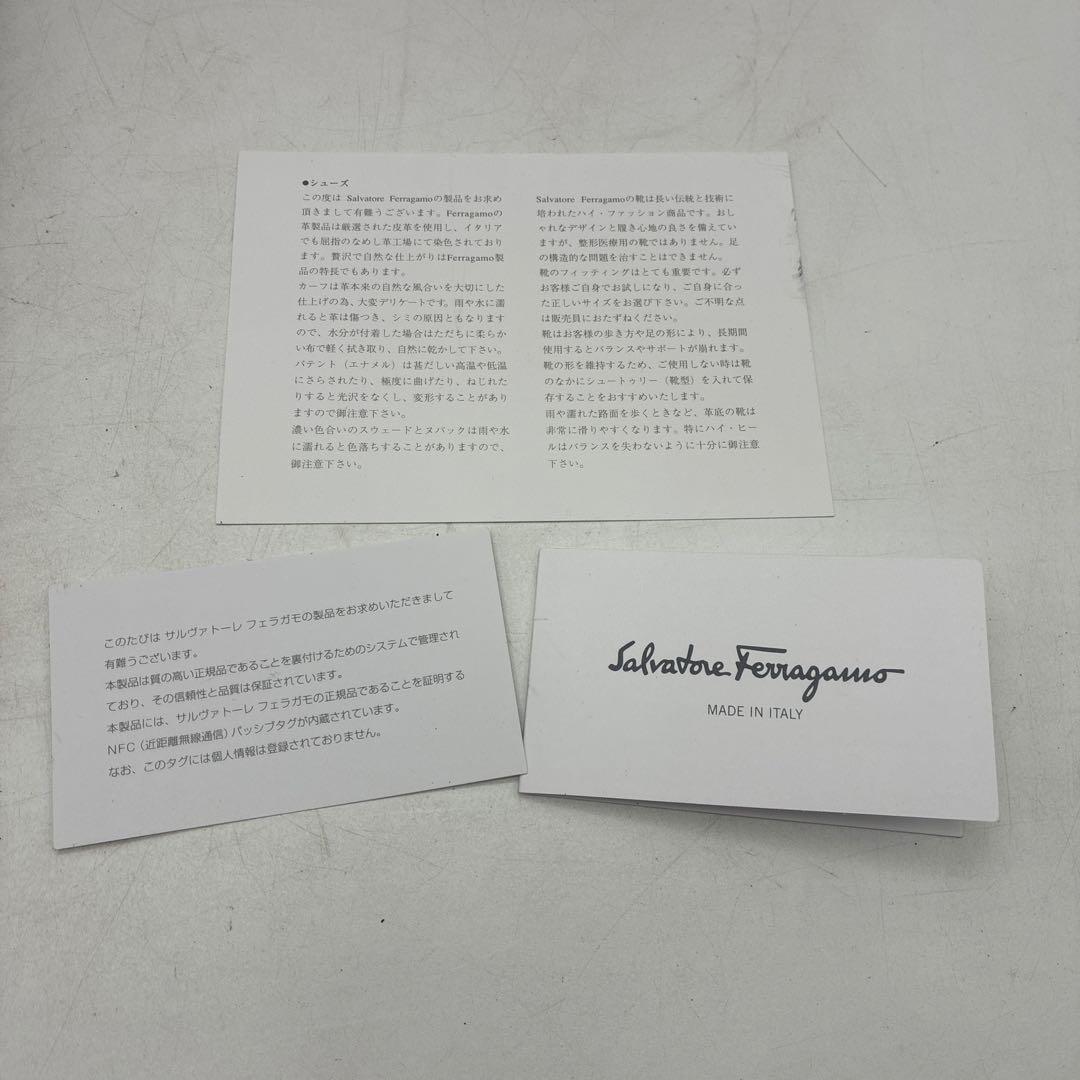 ●シューズ
この度は Salvatore Ferragamoの製品をお求め
頂きまして有難うございます。Ferragamoの
革製品は厳選された皮革を使用し、イタリア
でも屈指のなめし革工場にて染色されており
ます。贅沢で自然な仕上がりはFerragamo製
品の特長でもあります。
カーフは革本来の自然な風合いを大切にした
仕上げの為、大変デリケートです。雨や水に濡
れると革は傷つき、シミの原因ともなります
ので、水分が付着した場合はただちに柔らか
い布で軽く拭き取り、自然に乾かして下さい。
パテント（エナメル）は甚だしい高温や低温
にさらされたり、極度に曲げたり、ねじれた
りすると光沢をなくし、変形することがあり
ますので御注意下さい。
濃い色合いのスウェードとヌバックは雨や水
に濡れると色落ちすることがありますので、
御注意下さい。
Salvatore Ferragamoの靴は長い伝統と技術に
培われたハイ・ファッション商品です。おし
ゃれなデザインと履き心地の良さを備えてい
ますが、整形医療用の靴ではありません。足
の構造的な問題を治すことはできません。
靴のフィッティングはとても重要です。必ず
お客様ご自身でお試しになり、ご自身に合っ
た正しいサイズをお選び下さい。ご不明な点
は販売員におたずねください。
靴はお客様の歩き方や足の形により、長期間
使用するとバランスやサポートが崩れます。
靴の形を維持するため、ご使用しない時は靴
のなかにシュートゥリー（靴型）を入れて保
存することをおすすめいたします。
雨や濡れた路面を歩くときなど、革底の靴は
非常に滑りやすくなります。特にハイ・ヒー
ルはバランスを失わないように十分に御注意
下さい。
このたびは サルヴァトーレ フェラガモの製品をお求めいただきまして
有難うございます。
本製品は質の高い正規品であることを裏付けるためのシステムで管理され
ており、その信頼性と品質は保証されています。
本製品には、サルヴァトーレ フェラガモの正規品であることを証明する
NFC（近距離無線通信）パッシブタグが内蔵されています。
なお、このタグには個人情報は登録されておりません。
Salvatore Ferragamo
MADE IN ITALY